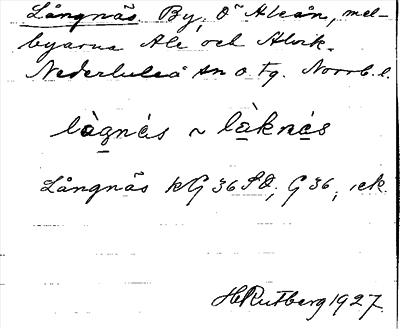 Långnäs By, Ö Aleån, mel-
byarna Ale och Alvik.
Nederluleå sn o tg. Norrb. l.
làgnäs ~ làknäs
Långnäs KG 36 SO, G 36, ek.
H Rutberg 1927.